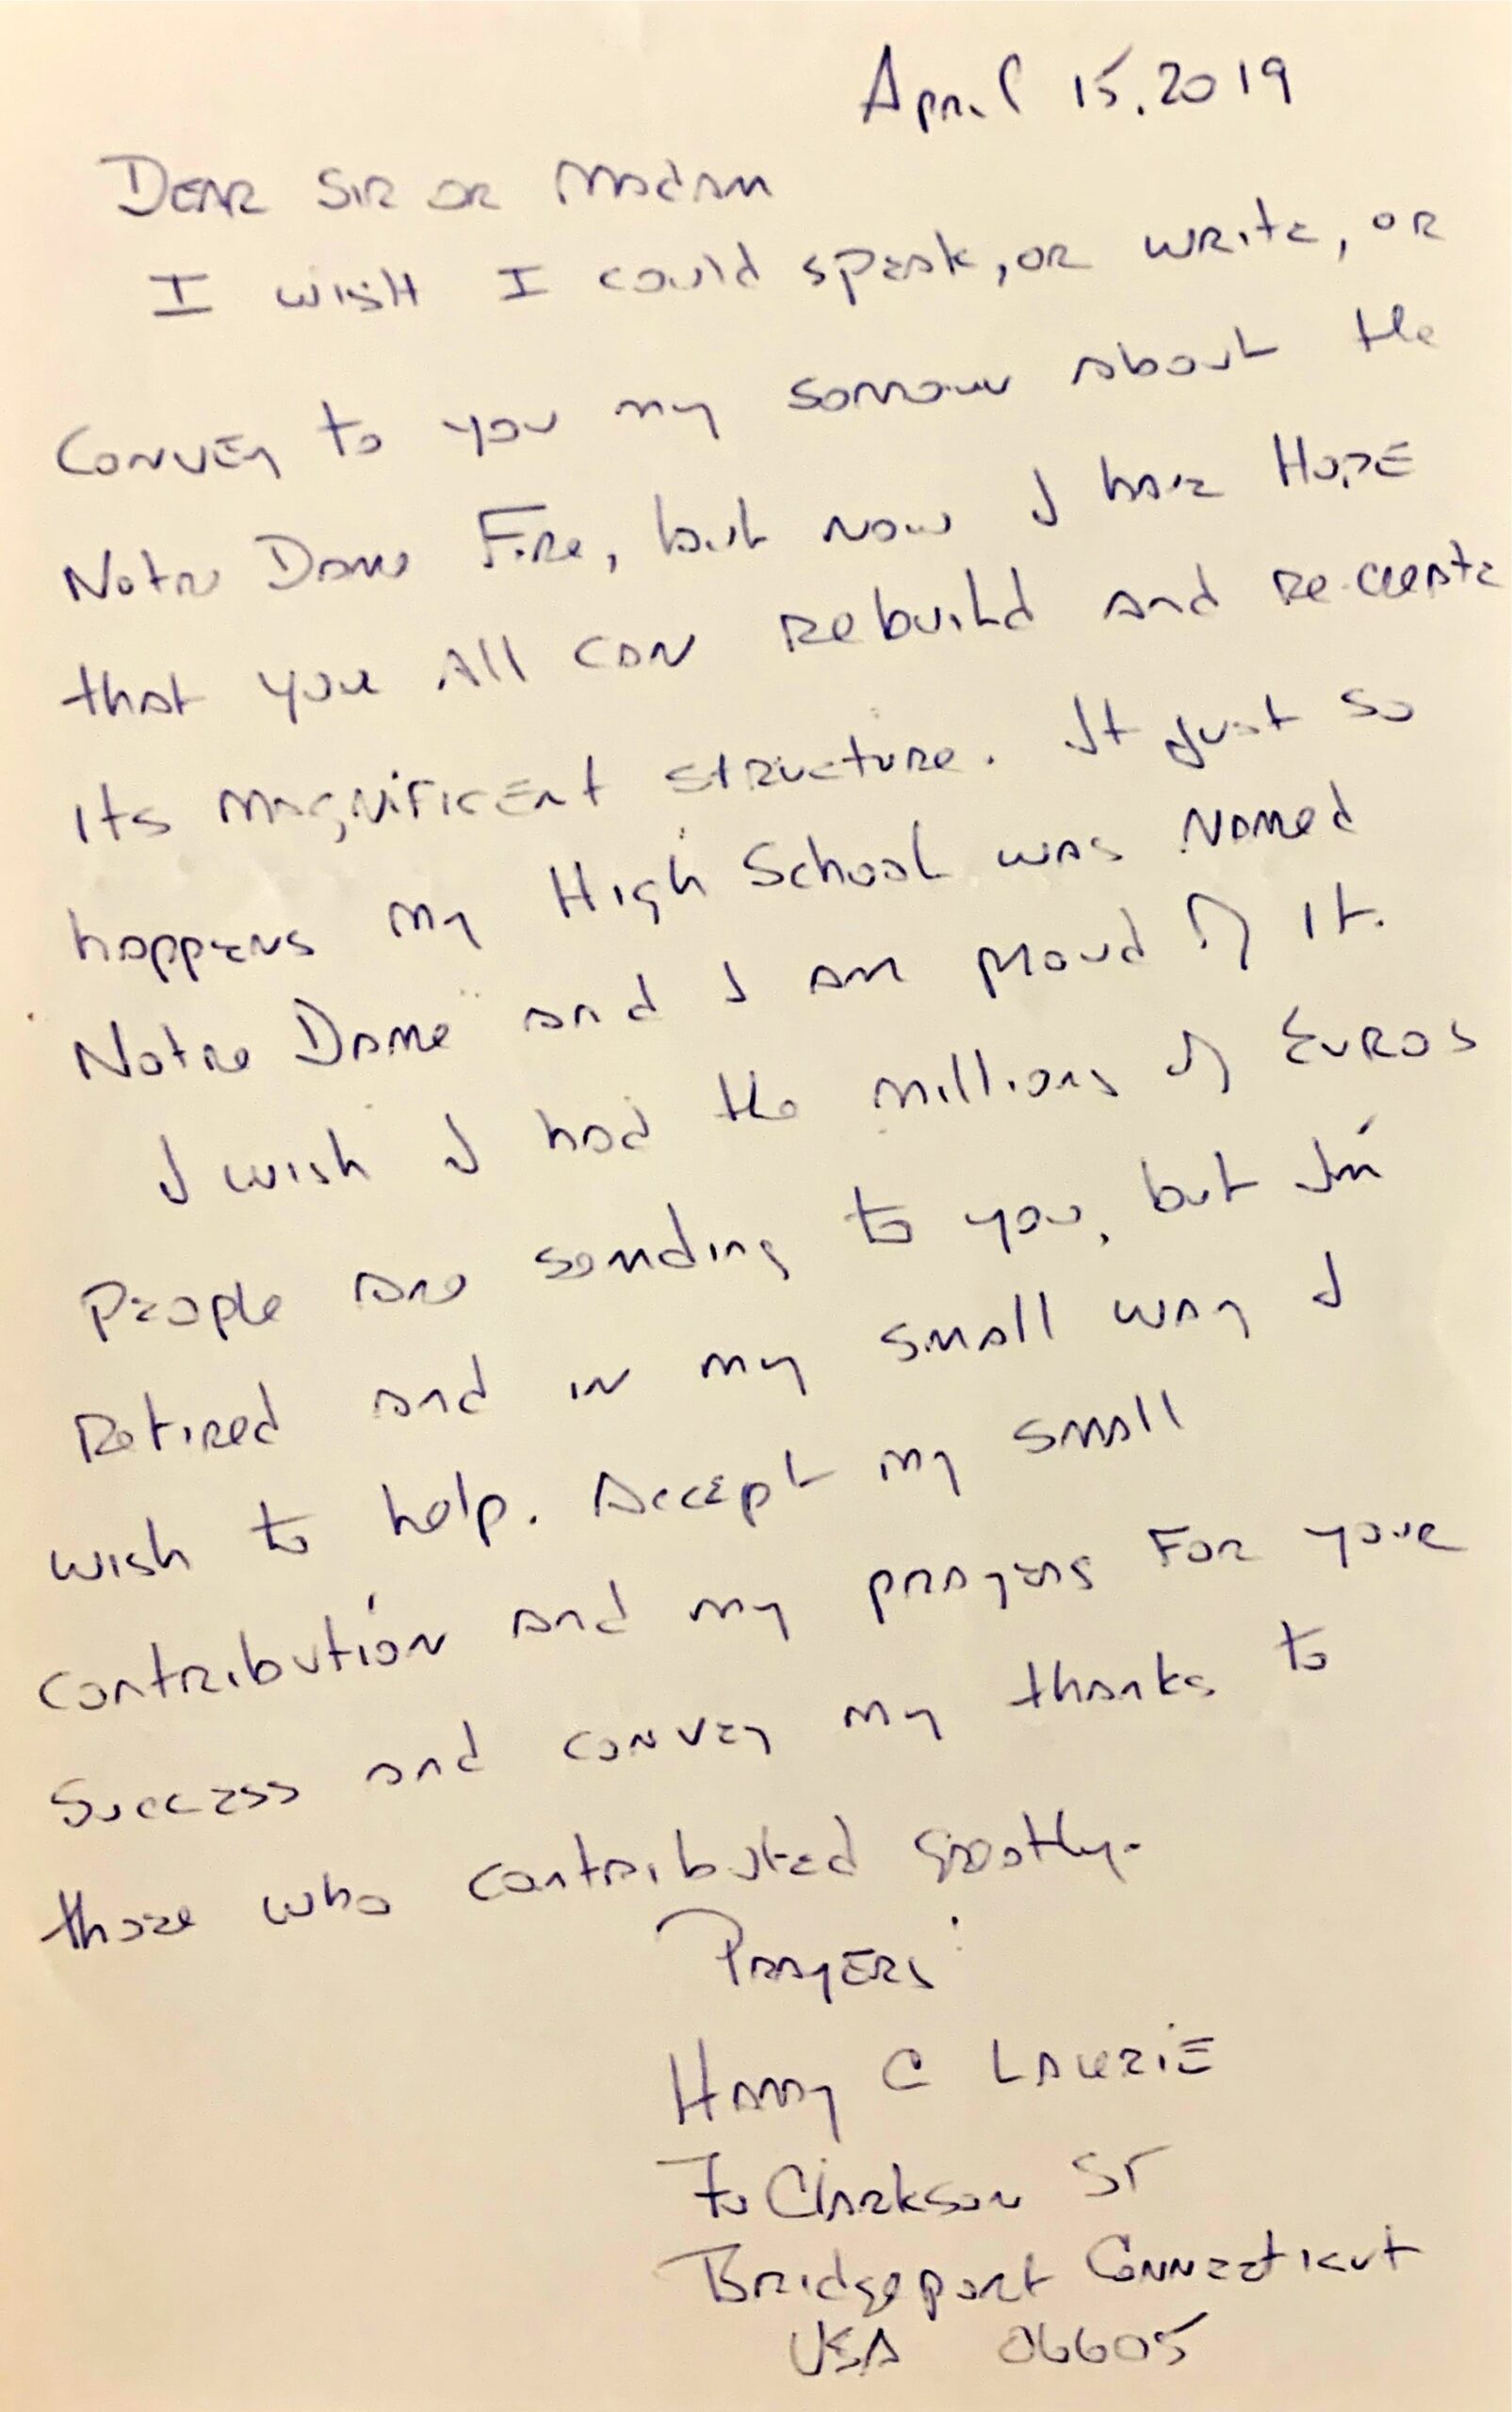 April 15, 2019
Dear Sir or Madam
I wish I could speak, or write, or
convey to you my sorrow about the
Notre Dame Fire, but now I have Hope
that you all can rebuild and re-create
its magnificent structure. It just so
happens my High School was named
Notre Dame and I am proud of it.
I wish I had the millions of Euros
People are sending to you, but I'm
Retired and in my small way I
wish to help. Accept my small
contribution and my prayers for your
success and convey my thanks to
those who contributed greatly.
Prayers
Harry C Laurie
70 Clarkson St
Bridgeport Connecticut
USA 06605